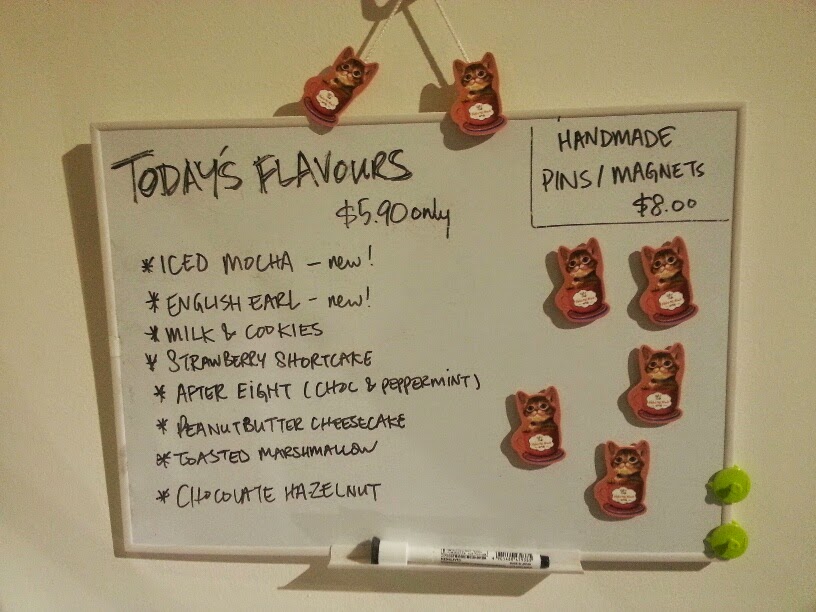 TODAY'S FLAVOURS
$5.90 only
* ICED MOCHA – new!
* ENGLISH EARL – new!
* MILK & COOKIES
* STRAWBERRY SHORTCAKE
* AFTER EIGHT (CHOC & PEPPERMINT)
* PEANUTBUTTER CHEESECAKE
* TOASTED MARSHMALLOW
* CHOCOLATE HAZELNUT
HANDMADE
PINS/MAGNETS
$8.00